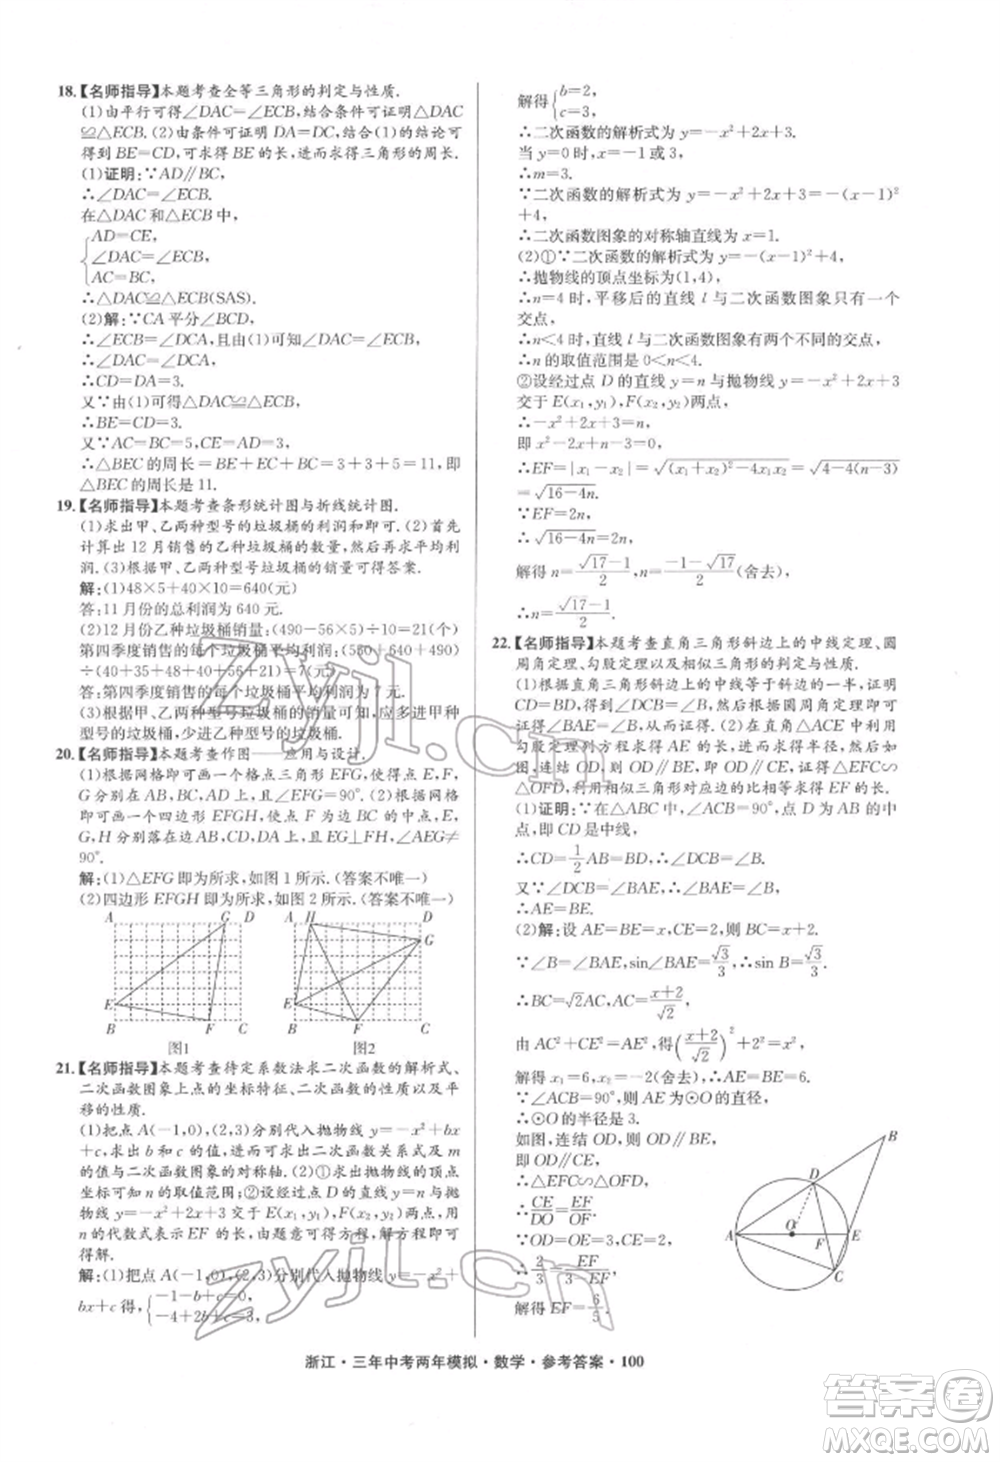 18.【名师指导】本题考查全等三角形的判定与性质.
(1)由平行可得∠DAC=∠ECB,结合条件可证明△DAC
≌△ECB.(2)由条件可证明DA=DC,结合(1)的结论可
得到BE=CD,可求得BE的长,于是可求得三角形的周长.
(1)证明:∵AD∥BC,
∴∠DAC=∠ECB.
在△DAC和△ECB中,
AD=CE,
∠DAC=∠ECB,
AC=BC,
∴△DAC≌△ECB(SAS).
(2)解:∵CA平分∠BCD,
∴∠ECB=∠DCA,且由(1)可知∠DAC=∠ECB,
∴∠DAC=∠DCA,
∴CD=DA=3.
又∵由(1)可得△DAC≌△ECB,
∴BE=CD=3.
又∵AC=BC=5,CE=AD=3,
∴△BEC的周长=BE+EC+BC=3+3+5=11,即
△BEC的周长是11.
19.【名师指导】本题考查条形统计图与折线统计图.
(1)求出甲、乙两种型号的垃圾桶的利润和即可.(2)首先
计算出12月销售的乙种垃圾桶的数量,然后列式计算即
可.(3)根据甲、乙两种型号垃圾桶的销量可得答案.
解:(1)48×5+40×10=640(元)
答:11月份的总利润为640元.
(2)12月份乙种垃圾桶销量:(490-56×5)÷10=21(个)
第四季度销售的垃圾桶平均利润:(550+640+490)
÷(50+35+48+40+56+21)=7(元)
答:第四季度销售的垃圾桶平均利润为7元.
(3)根据甲、乙两种型号垃圾桶的销量可知,应多进甲种
型号的垃圾桶,少进乙种型号的垃圾桶.
20.【名师指导】本题考查作图——应用与设计.
(1)根据网格即可画一个格点三角形EFG,使得点E,F,
G分别落在边AB,BC,CD上,且∠EFG=90°.(2)根据网
格即可画一个四边形EFGH,使点F为边BC的中点,E,
G,H分别落在边AB,CD,DA上,且EG⊥FH,∠AEG≠
90°.
解:(1)△EFG即为所求,如图1所示.(答案不唯一)
(2)四边形EFGH即为所求,如图2所示.(答案不唯一)
A G D A H D
G
E E
B F C B F C
图1 图2
21.【名师指导】本题考查待定系数法求二次函数的解析式、
二次函数图象上点的坐标特征、二次函数的性质以及平
移的性质.
(1)把点A(-1,0),(2,3)分别代入抛物线y=-x²+bx
+c,求出b和c的值,可得到二次函数关系式与m的值,
再通过二次函数图象的对称轴.(2)①根据抛物线的顶点
坐标可知n的取值范围;②设经过点D的直线y=n与抛物
线y=-x²+2x+3交于E(x₁,y₁),F(x₂,y₂)两点,用
n的代数式表示EF的长,由题意可得方程,解方程即可
得解.
解:(1)把点A(-1,0),(2,3)分别代入抛物线y=-x²+
bx+c得,{-1-b+c=0,
-4+2b+c=3,
解得{b=2,
c=3,
∴二次函数的解析式为y=-x²+2x+3.
当y=0时,x=-1或3.
∴m=3.
∵二次函数的解析式为y=-x²+2x+3=-(x-1)²
+4,
∴二次函数图象的对称轴直线为x=1.
(2)①∵二次函数的解析式为y=-x²+2x+3,
∴抛物线的顶点坐标为(1,4),
∴n=4时,平移后的直线l与二次函数图象只有一个
交点,
∴n<4时,直线l与二次函数图象有两个不同的交点,
∴n的取值范围是0<n<4.
②设经过点D的直线y=n与抛物线y=-x²+2x+3
交于E(x₁,y₁),F(x₂,y₂)两点,
∴-x²+2x+3=n,
即x²-2x-3+n=0,
∴EF=|x₁-x₂|=√((x₁+x₂)²-4x₁x₂)=√(4-4(n-3))
=√(16-4n),
∵EF=2n,
∴√(16-4n)=2n,
解得n=(√17-1)/2,n=(-1-√17)/2(舍去),
∴n=(√17-1)/2.
22.【名师指导】本题考查直角三角形斜边上的中线定理、圆
周角定理、勾股定理以及相似三角形的判定与性质.
(1)根据直角三角形斜边上的中线等于斜边的一半可证
CD=BD,得到∠DCB=∠DBC,然后根据圆周角定理可
证得∠BAE=∠B,可得结论.(2)在直角△ACE中利用
勾股定理列方程求得AE的长,从而得到⊙O的半径.如
图,连结OD,可证OD∥BE,证得△EFC∽
△OFD,利用相似三角形对应边的比相等求得EF的长.
(1)证明:∵在△ABC中,∠ACB=90°,点D为AB的中
点,即CD是中线,
∴CD=1/2AB=BD,∴∠DCB=∠B.
又∵∠DCB=∠BAE,∴∠B=∠BAE,
∴AE=BE.
(2)解:设AE=BE=x,CE=2,则BC=x+2.
∵∠B=∠BAE,sin∠BAE=√3/3,∴sin B=√3/3,
∴BC=√2AC,∴AC=(x+2)/√2,
由AC²+CE²=AE²,得((x+2)/√2)²+2²=x²,
解得x₁=6,x₂=-2(舍去),∴AE=BE=6.
∵∠ACB=90°,则AE为⊙O的直径,
∴⊙O的半径是3.
如图,连结OD,则OD∥BE,
即OD∥CE,
∴△EFC∽△OFD,
∴CE/DO=EF/OF,
∴2/3=EF/(3-EF),
解得EF=6/5.
B
D
O
A F E
C
浙江·三年中考两年模拟·数学·参考答案·100
zyjl.cn
zyjl.cn
答案圈
MXQE.COM